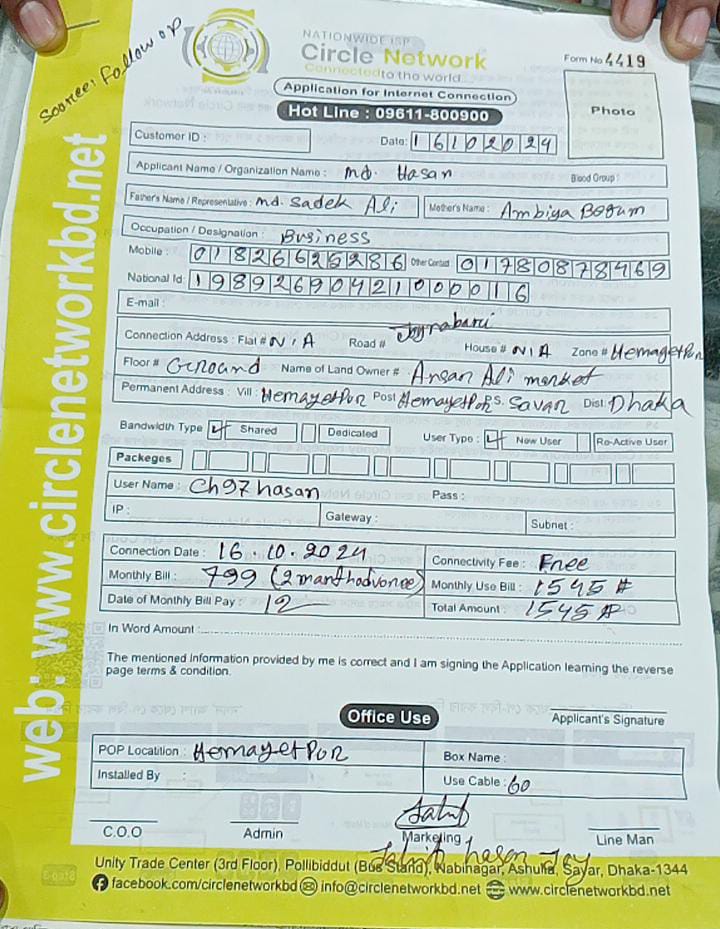 Source: Follow up
NATIONWIDE ISP
Circle Network
Connected to the world...
Form No 4419
Application for Internet Connection
Hot Line : 09611-800900
Photo
Customer ID :
Date: 16102024
Applicant Name / Organization Name : md. Hasan
Blood Group :
Father's Name / Representative : md. Sadek Ali
Mother's Name : Ambiya Begum
Occupation / Designation : Business
Mobile : 01826625286 Other Contact 01780878469
National Id: 19892690421000016
E-mail :
Connection Address : Flat # N/A Road # Joynabari House # N/A Zone # HemayetPur
Floor # Ground Name of Land Owner # Ansar Ali market
Permanent Address : Vill : HemayetPur Post HemayetPur P.S. Savar Dist: Dhaka
Bandwidth Type Shared Dedicated User Type : New User Re-Active User
Packeges
User Name : Ch97hasan Pass :
IP : Gateway : Subnet :
Connection Date : 16.10.2024 Connectivity Fee : Free
Monthly Bill : 799 (2 month advance) Monthly Use Bill : 1545 #
Date of Monthly Bill Pay : 12 Total Amount : 1545 #
In Word Amount :
The mentioned Information provided by me is correct and I am signing the Application learning the reverse
page terms & condition.
Office Use
Applicant's Signature
POP Locatition : HemayetPur Box Name :
Installed By : Use Cable : 60
C.O.O Admin Marketing Line Man
hasan Joy
Unity Trade Center (3rd Floor), Pollibiddut (Bus Stand), Nabinagar, Ashulia, Savar, Dhaka-1344
facebook.com/circlenetworkbd info@circlenetworkbd.net www.circlenetworkbd.net
web: www.circlenetworkbd.net